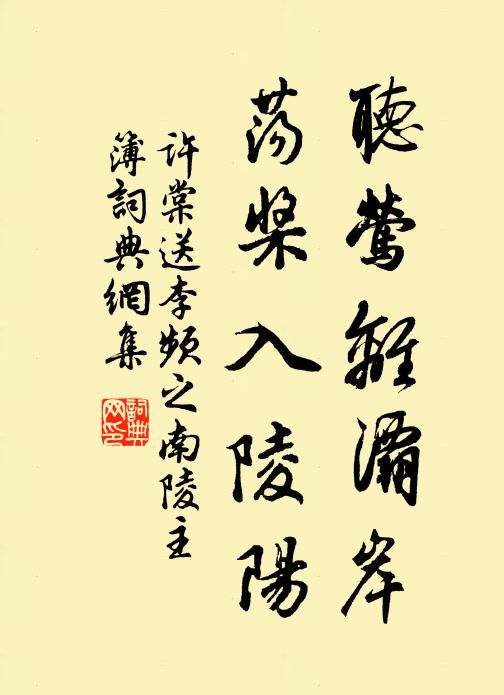 聽鶯離灞岸
蕩槳入陵陽
許棠送李頻之南陵主
簿詞典網集
詞典網印